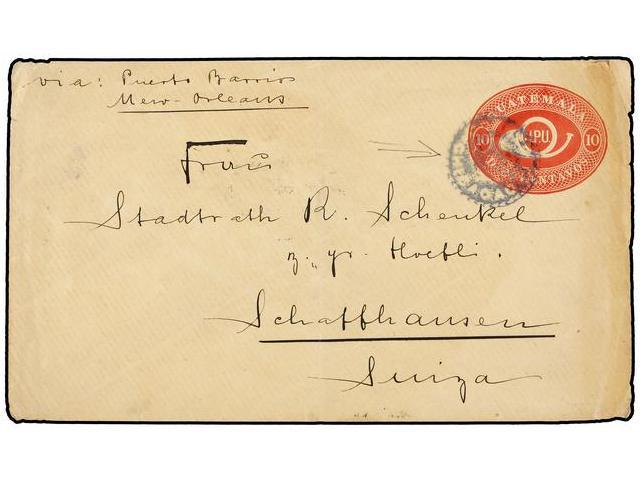 via: Puerto Barrios
New-Orleans
Frau
Stadtrath R. Schenkel
z. „ gr. Hoefli.
Schaffhausen
Suiza
GUATEMALA
10 U.P.U. 10
CENTAVOS